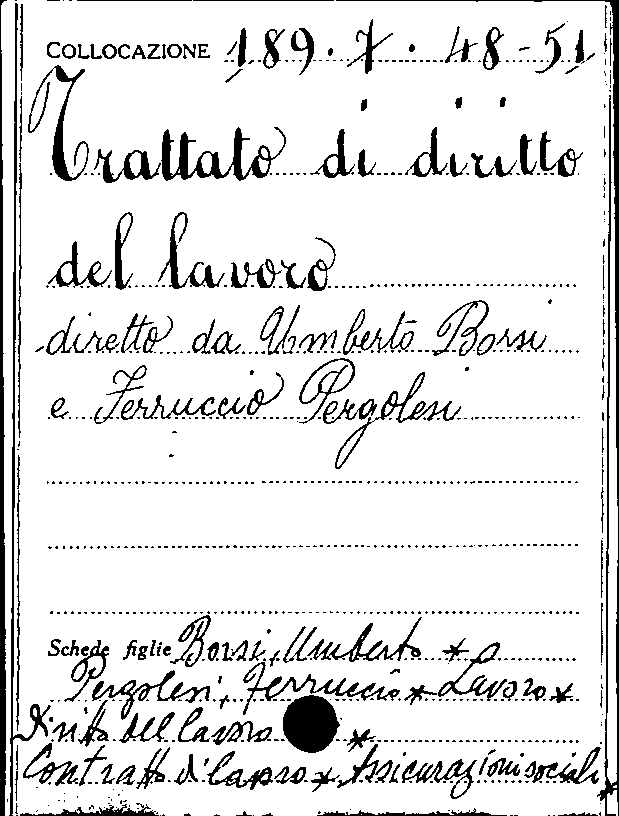 COLLOCAZIONE 189.7.48-51
Trattato di diritto
del lavoro
diretto da Umberto Borsi
e Ferruccio Pergolesi
Schede figlie Borsi, Umberto *
Pergolesi, Ferruccio * Lavoro *
Diritto del lavoro *
Contratto d'lavoro *, Assicurazioni sociali *